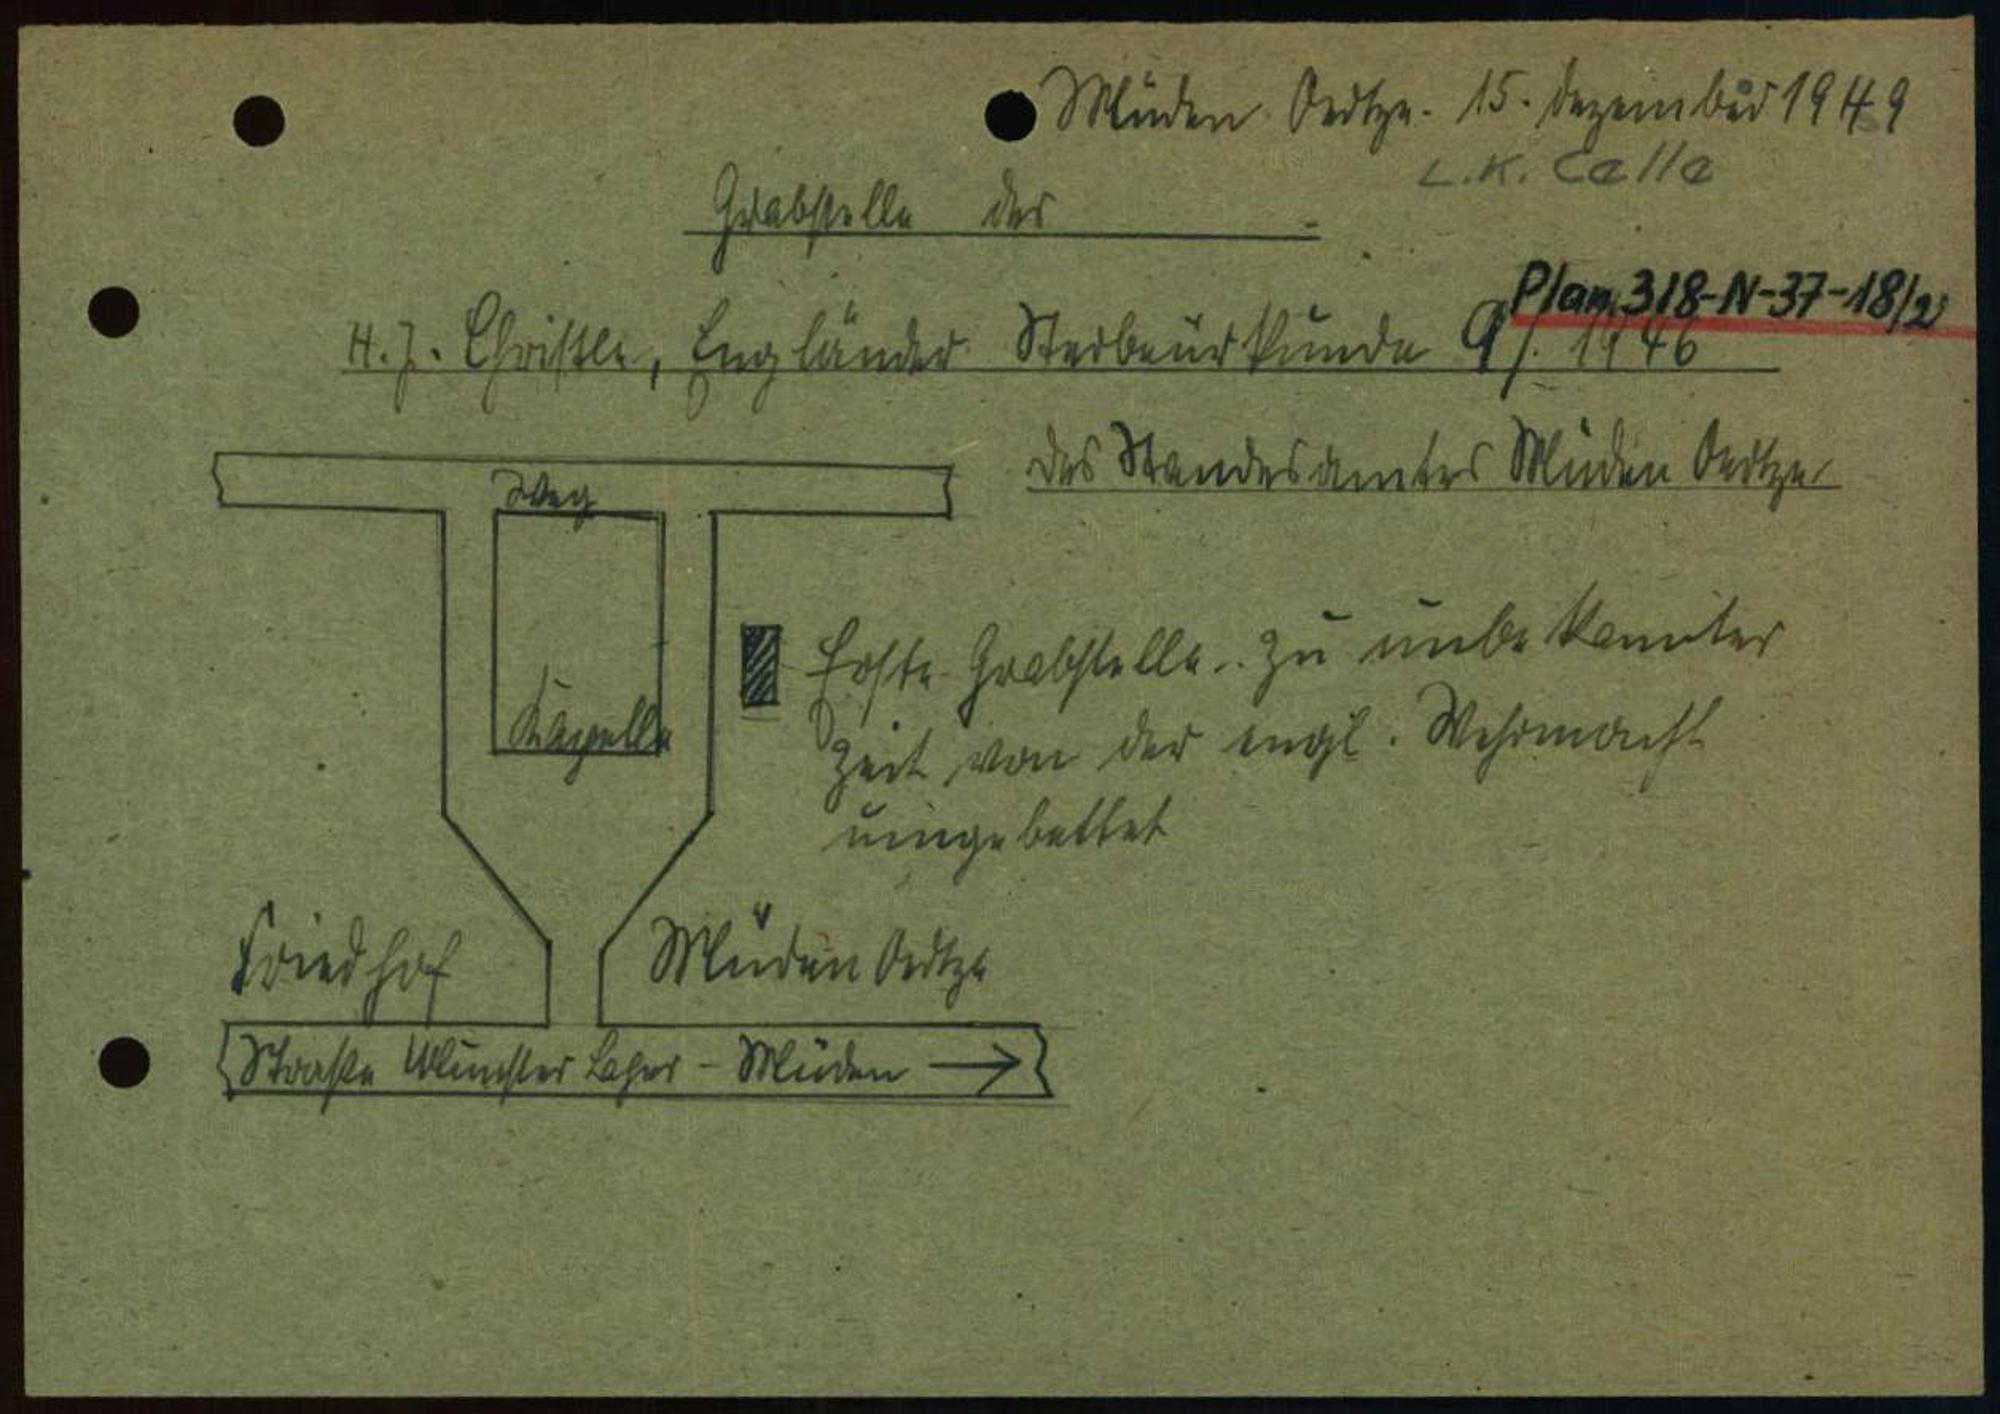 Müden Oertze. 15. Dezember 1949
L.K. Celle
Grabstelle des
Plan 318-N-37-18/2
H.J. Christle, Engländer Sterbeurkunde 9/. 1946
des Standesamtes Müden Oertze
Weg
Erste Grabstelle. Zu unbekannter
Kapelle
Zeit von der engl. Wehrmacht
umgebettet
Friedhof Müden Oertze
Straße Munster Lager - Müden →